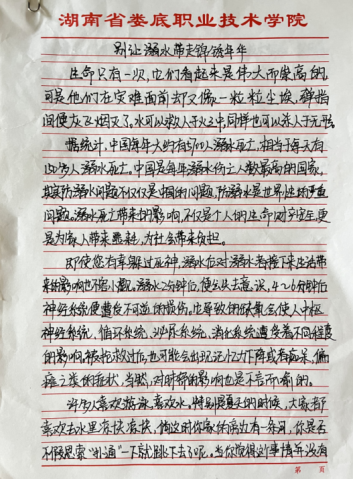 湖南省娄底职业技术学院
别让溺水带走锦绣年年
生命只有一次,它们看起来是伟大而崇高的,
可是他们在灾难面前却又像一粒粒尘埃,碑指
间便灰飞烟灭了,水可以救人于火之中同样也可以杀人于无形。
据统计,中国每年大约有57000人溺水死亡,相当于每天有
150多人溺水死亡。中国是每年溺水伤亡人数最高的国家,
溺水问题不仅仅是中国的问题,防溺水是世界性的严重
问题。溺水死亡带来的影响,不仅是个人的生命间失逝,更
是为家人带来噩耗,为社会带来负担。
即使您有幸躲过死神,溺水后对溺水者接下来生活带
来的影响也不容小觑。溺水2分钟后,便会失去意识,4-6分钟后
神经系统便遭受不可逆的损伤。也导致的缺氧会使人中枢
神经系统、循环系统、泌尿系统、消化系统遭受着不同程度
的影响,被抢救过后,也可能会出现记忆力下降或者痴呆,偏
瘫之类的症状,当然,对肺部的影响也是不言而喻的。
许多人喜欢游泳,喜欢水,特别是夏天的时候,大家都
喜欢去水里凉快凉快,倘这时你家的病边有一条河,你是否
不假思索“扑通”一下就跳下去了呢。当你觉得这事情并没有
第 页